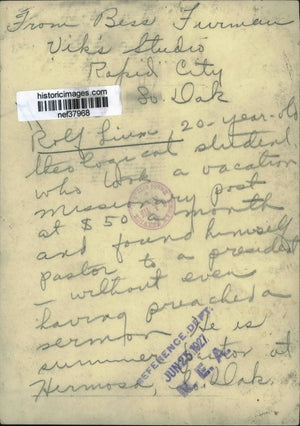 From Bess Furman
Vik's Studio
Rapid City
So. Dak
historicimages.com
nef37968
Rolf Lium, 20-year-old
theological student
who took a vacation
missionary post
at $50 a month
and found himself
pastor to a president
— without even
having preached a
sermon. He is
summer pastor at
Hermosa, S. Dak.
REFERENCE DEPT.
JUN 25 1927
N. E. A.